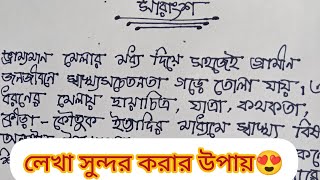 সারাংশ
ভ্রাম্যমান মেলার মধ্য দিয়ে সহজেই গ্রামীন
জনজীবনে স্বাস্থ্যসচেতনতা গড়ে তোলা যায়। এ
ধরনের মেলায় ছায়াচিত্র, যাত্রা, কথকতা,
ক্রীড়া-কৌতুক ইত্যাদির মাধ্যমে স্বাস্থ্য বিষ
লেখা সুন্দর করার উপায়😍